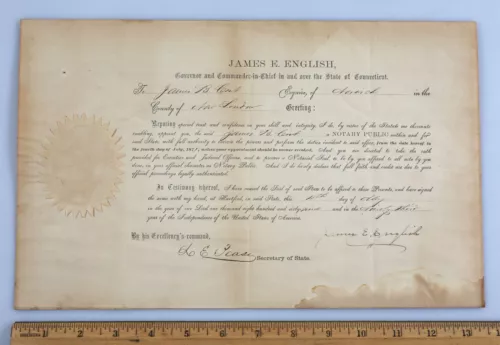 JAMES E. ENGLISH,
Governor and Commander-in-Chief in and over the State of Connecticut.
To James H. Esquire, of Norwich in the
County of New London Greeting:
Reposing special trust and confidence in your skill and integrity, I do, by virtue of the Statute in
appoint you, the said James H. a NOTARY PUBLIC within and for
said State, with full authority to and perform the duties incident to said office, from the date hereof to
the fourth day of July, 1871, unless your appointment should be sooner revoked. And you are directed to take the oath
provided for Executive and Judicial Officers, and to procure a Notarial Seal to be by you affixed to all acts by you
done, in your official character as Notary Public. And I do hereby declare that full faith and credit are due to your
official proceedings legally authenticated.
In Testimony whereof, I have caused the Seal of said State to be affixed to these Presents, and have signed
the same with my hand, at Hartford, in said State, this day of July
in the year of our Lord one thousand eight hundred and sixty and in the Ninety third
year of the Independence of the United States of America.
By his Excellency's command,
James E. English
L E Pease Secretary of State.
1 2 3 4 5 6 7 8 9 10 11 12 13